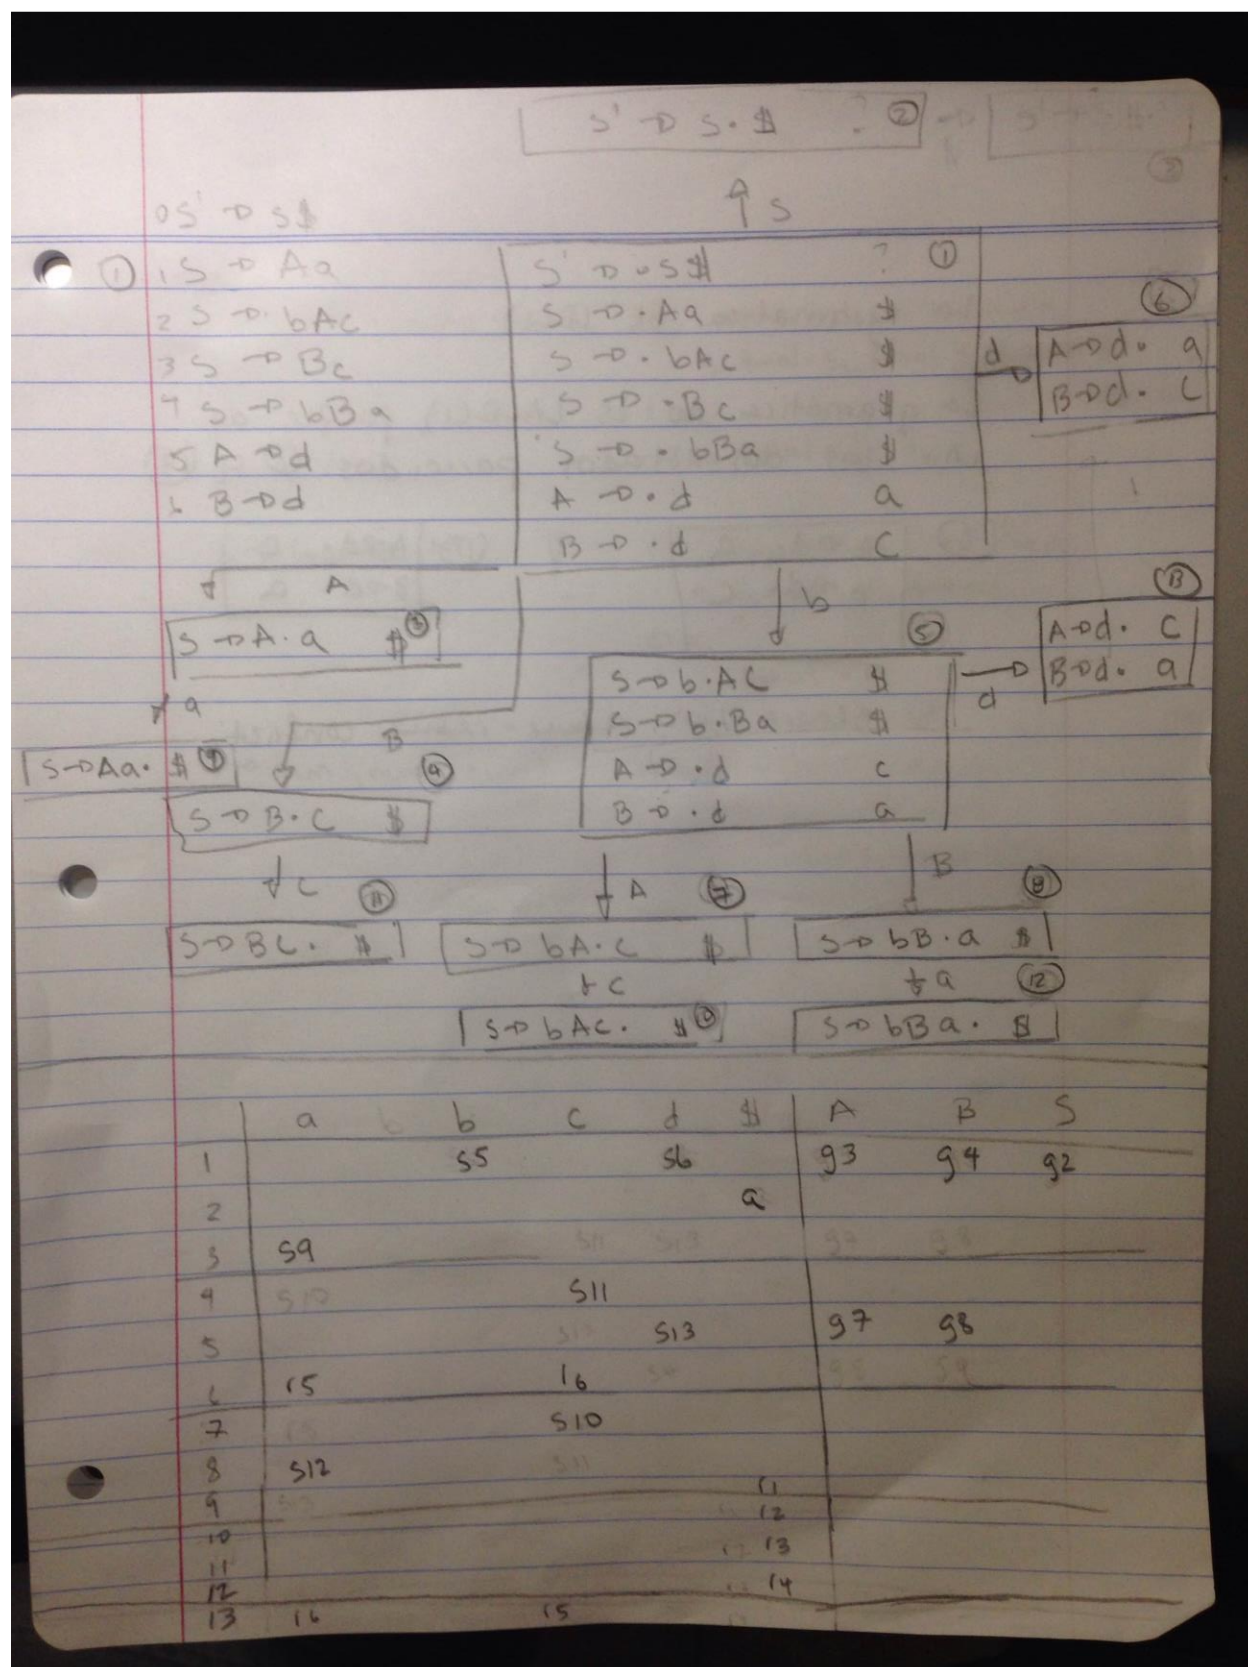 S' → S·$ ? ②
↑ S
0 S' → S$
① 1 S → Aa
2 S → bAc
3 S → Bc
4 S → bBa
5 A → d
6 B → d
S' → ·S$ ? ①
S → ·Aa $
S → ·bAc $
S → ·Bc $
S → ·bBa $
A → ·d a
B → ·d c
d
⑥
A→d· a
B→d· c
A
S→A·a $ ③
a
S→Aa· $ ⑨
B
④
S→B·C $
b
⑤
S→b·AC $
S→b·Ba $
A→·d c
B→·d a
d
⑬
A→d· c
B→d· a
C ⑪
S→BC· $
A ⑦
S→bA·c $
c
S→bAc· $ ⑩
B ⑧
S→bB·a $
a ⑫
S→bBa· $
a b c d $ A B S
1 s5 s6 g3 g4 g2
2 a
3 s9
4 s11
5 s13 g7 g8
6 r5 r6
7 s10
8 s12
9 r1
10 r2
11 r3
12 r4
13 r6 r5